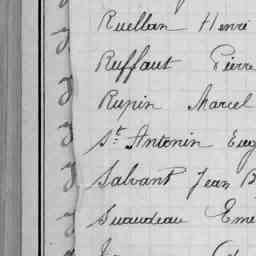 Ruellan Henri
Ruffaut Pierre
Rupin Marcel
St Antonin Eug
Salvant Jean B
Suaudeau Eme